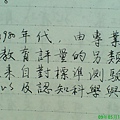 80年代，由專業
教育評量的另類
來自對標準測驗
以及認知科學與